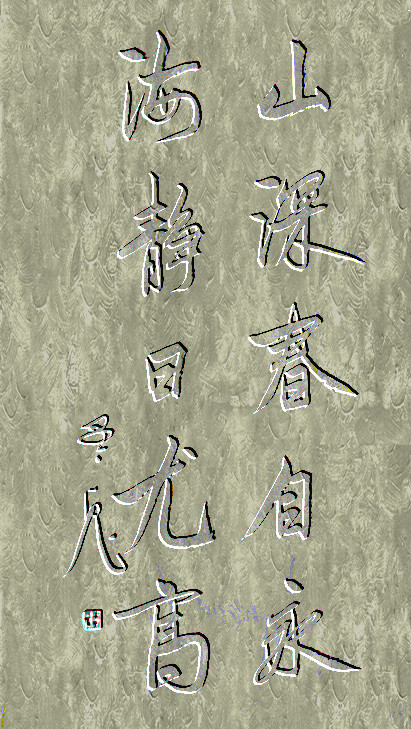 山深春自永
海静日尤高